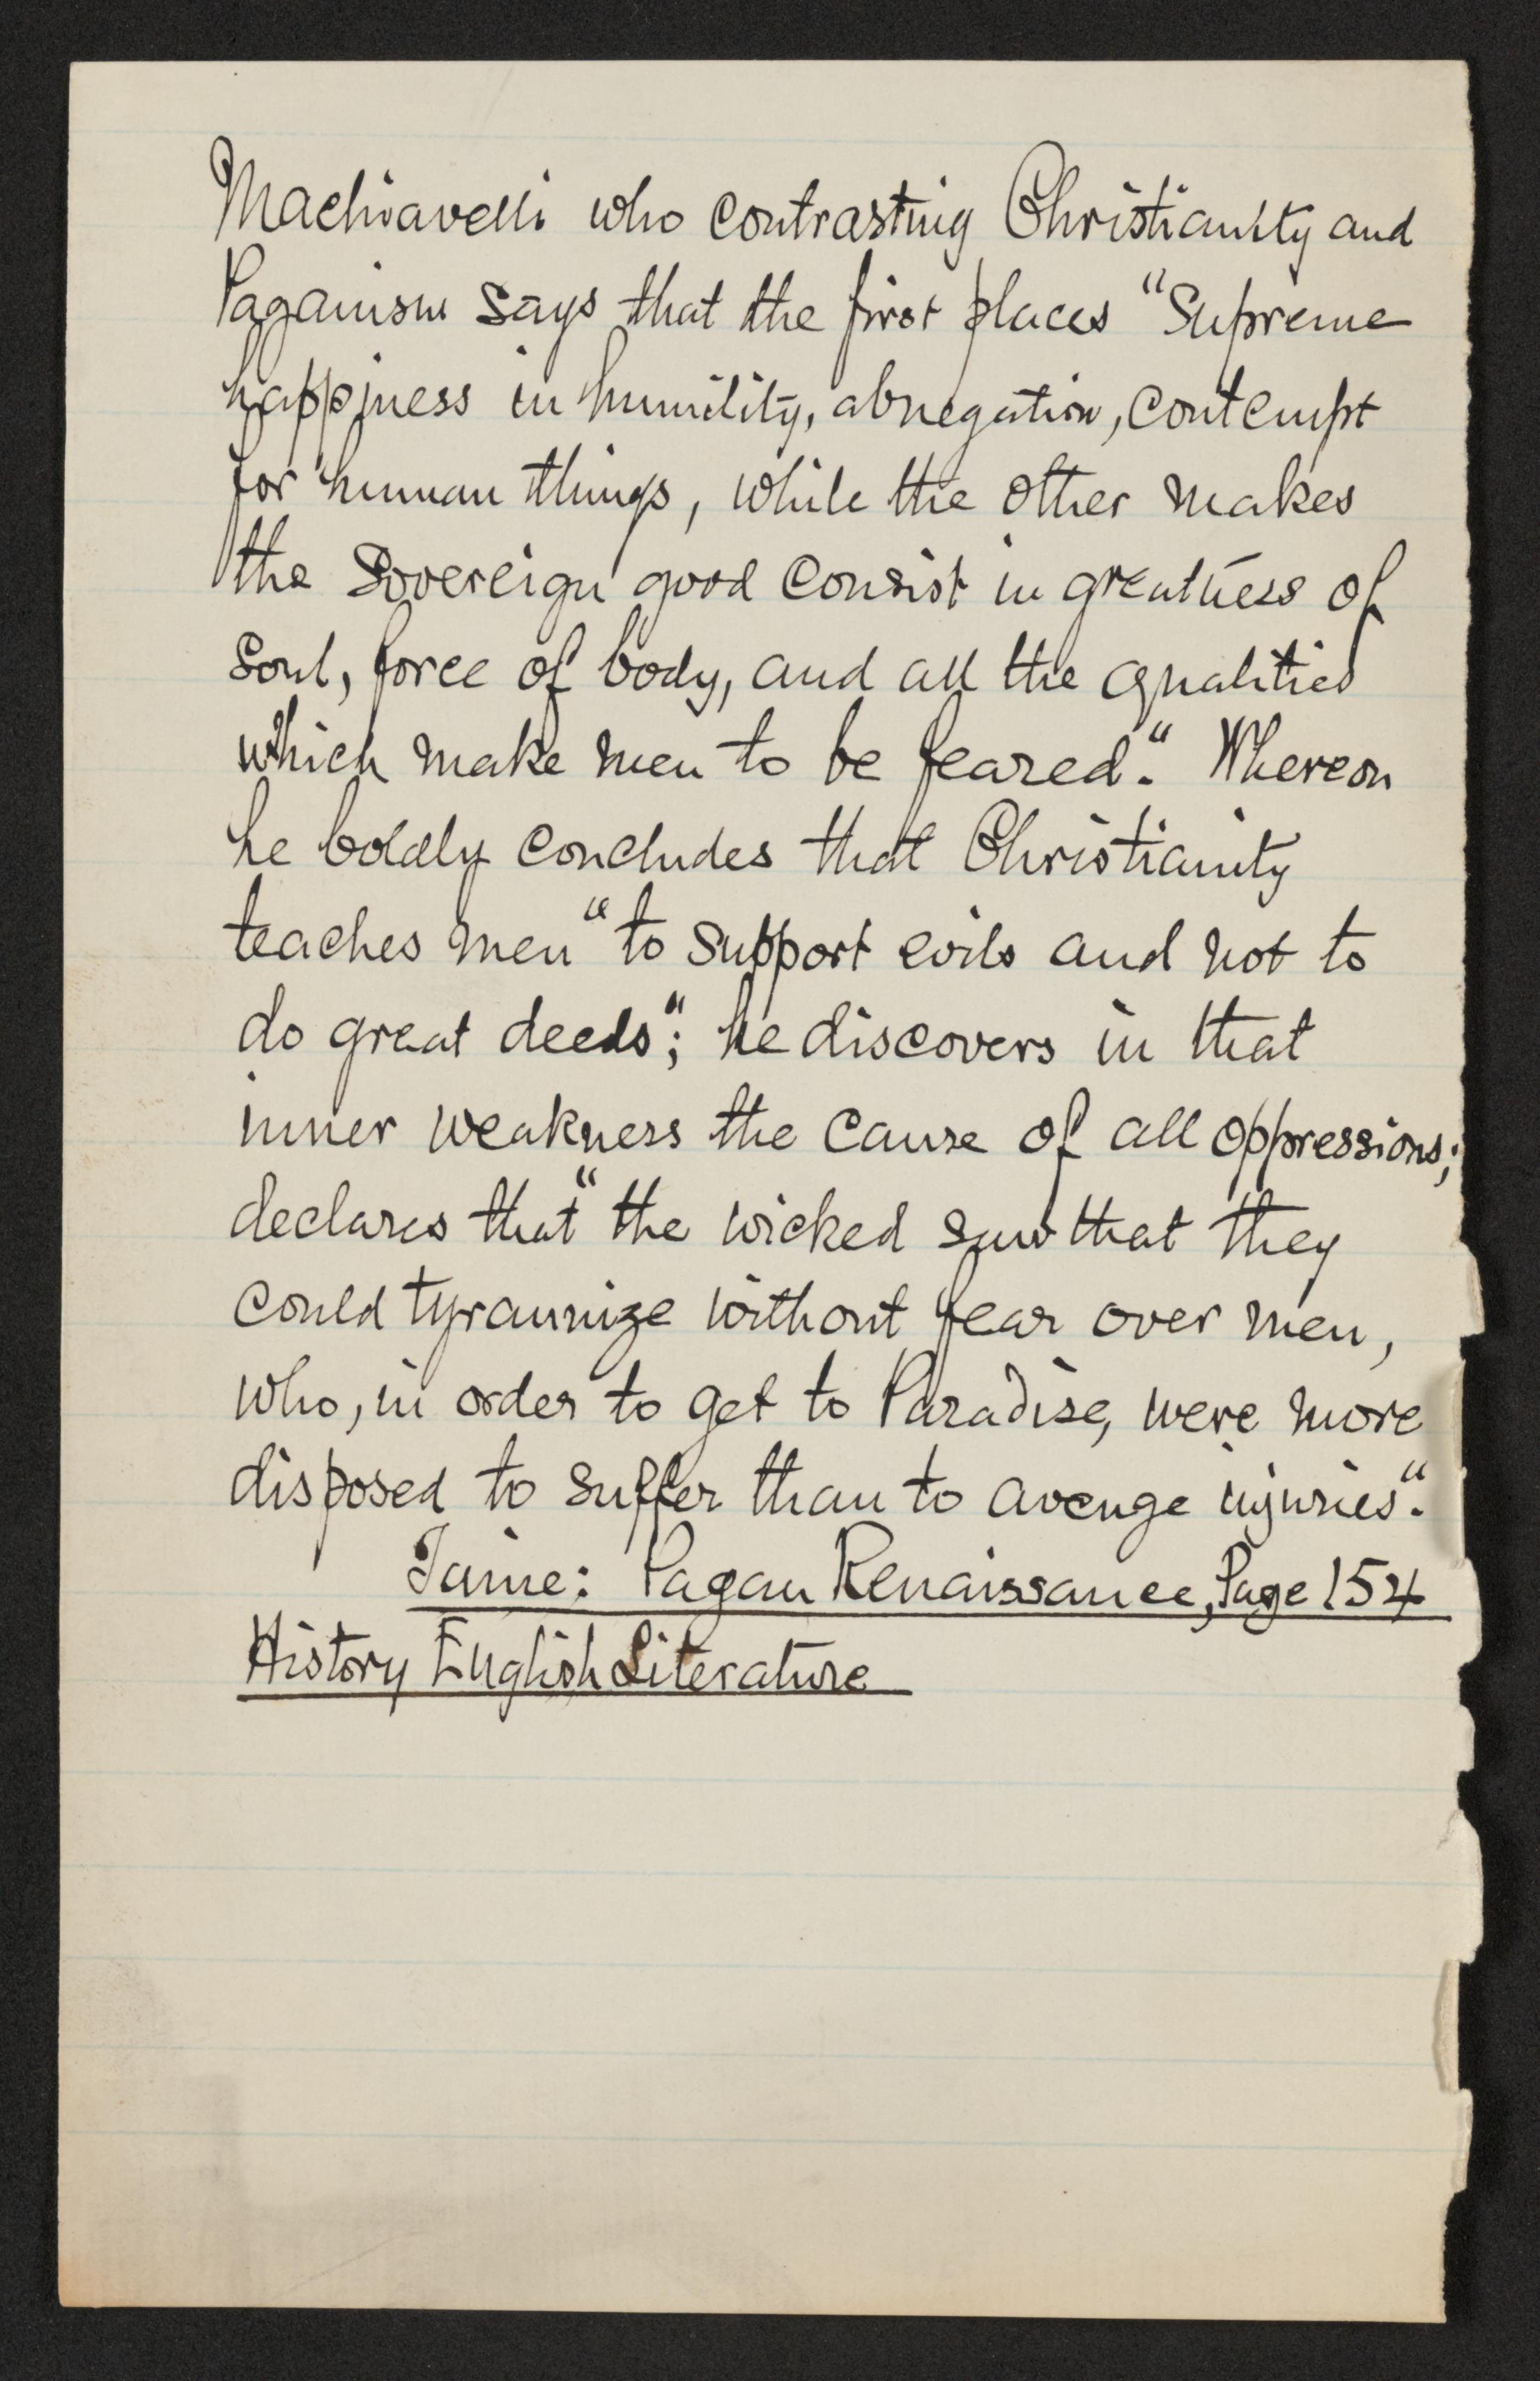 Machiavelli who contrasting Christianity and
Paganism says that the first places “Supreme
happiness in humility, abnegation, contempt
for human things, while the other makes
the Sovereign good consist in greatness of
Soul, force of body, and all the qualities
which make men to be feared.“ Whereon
he boldly concludes that Christianity
teaches men “to support evils and not to
do great deeds“; he discovers in that
inner weakness the cause of all oppressions;
declares that “the wicked saw that they
could tyrannize without fear over men,
who, in order to get to Paradise, were more
disposed to suffer than to avenge injuries“.
Taine: Pagan Renaissance, Page 154
History English Literature